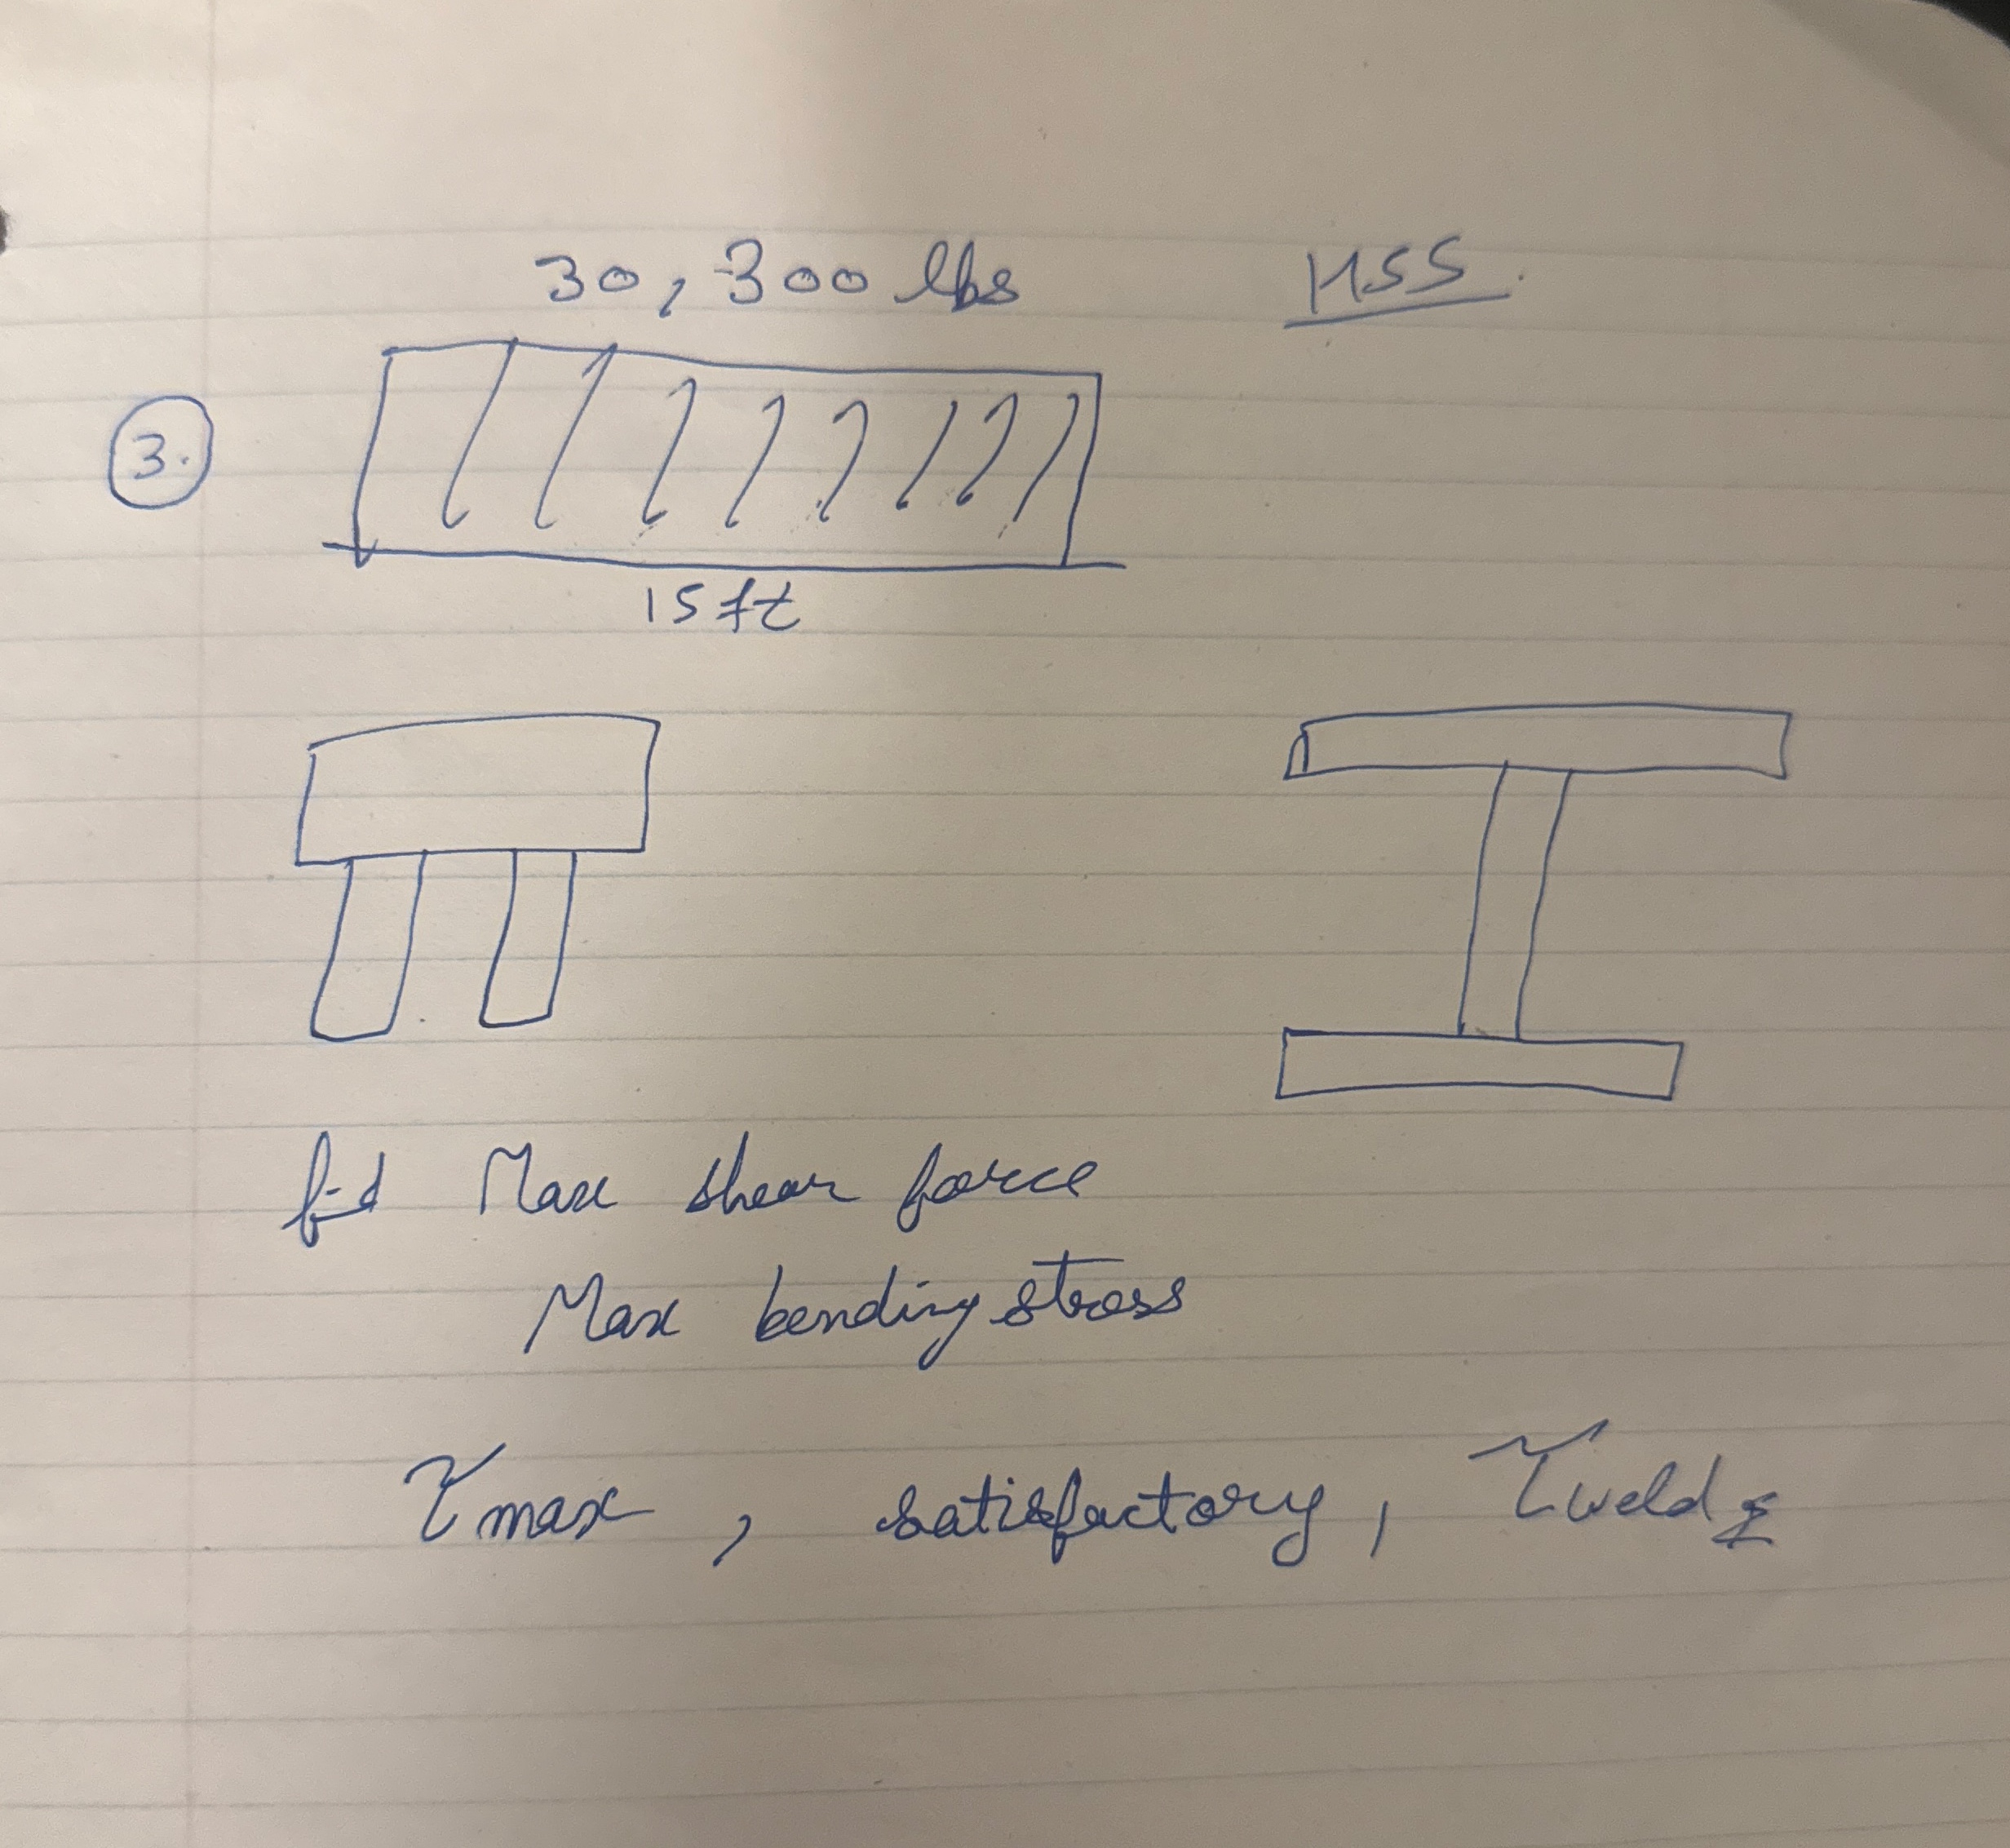 30,300 lbs HSS.
3.
15ft
find Max shear force
Max bending stress
τmax, satisfactory, τweld